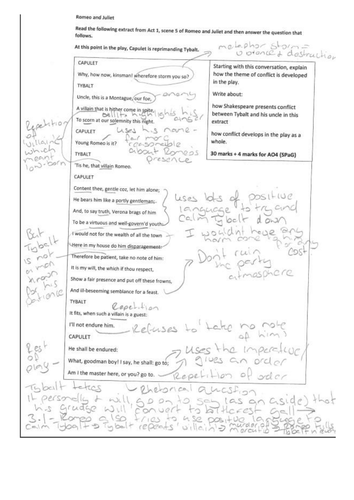 Romeo and Juliet
Read the following extract from Act 1, scene 5 of Romeo and Juliet and then answer the question that
follows.
At this point in the play, Capulet is reprimanding Tybalt.
metaphor storm =
violence + destruction
CAPULET
Why, how now, kinsman! wherefore storm you so?
TYBALT
Uncle, this is a Montague, our foe,
enemy
A villain that is hither come in spite,
To scorn at our solemnity this night.
CAPULET
Young Romeo is it?
uses his name -
far more
reasonable
about Romeos
presence
TYBALT
'Tis he, that villain Romeo.
CAPULET
Content thee, gentle coz, let him alone;
He bears him like a portly gentleman;
And, to say truth, Verona brags of him
To be a virtuous and well-govern'd youth:
I would not for the wealth of all the town
Here in my house do him disparagement:
Therefore be patient, take no note of him:
It is my will, the which if thou respect,
Show a fair presence and put off these frowns,
And ill-beseeming semblance for a feast.
TYBALT
Repetition
It fits, when such a villain is a guest:
I'll not endure him.
Refuses to 'take no note
of him'
CAPULET
He shall be endured:
What, goodman boy! I say, he shall: go to;
Am I the master here, or you? go to.
Uses the imperative/
gives an order
Repetition of order
Starting with this conversation, explain
how the theme of conflict is developed
in the play.
Write about:
how Shakespeare presents conflict
between Tybalt and his uncle in this
extract
how conflict develops in the play as a
whole.
30 marks + 4 marks for AO4 (SPaG)
uses lots of positive
language to try and
calm Tybalt down
I wouldnt have any
harm
Dont ruin
the party
atmosphere
Repetition
of villain
which
meant
low-born
But
Tybalt
is not
a man
known
for his
patience
Rest
of
play -
Rhetorical question
Tybalt takes
it personally + will go on to say (as an aside) that
his grudge will convert to bitterest gall
3.1 - Romeo also tries to use positive language to
calm Tybalt Tybalt repeats 'villain'